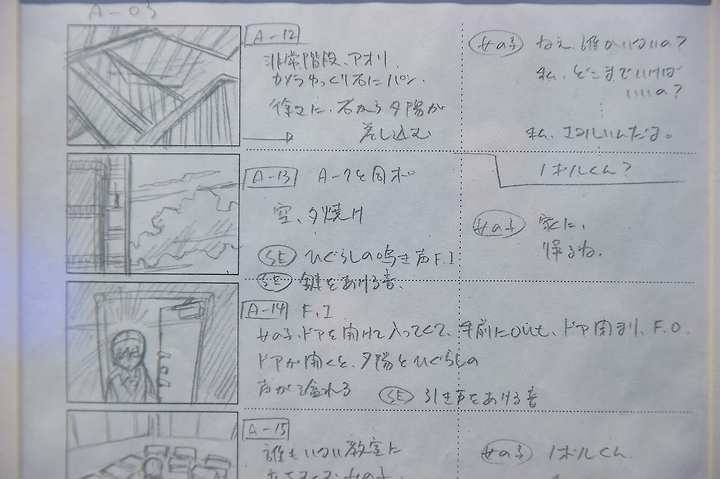 A-03
A-12
非常階段、アオリ.
カメラゆっくり右にパン.
徐々に、右から夕陽が
差し込む
女の子
ねえ、誰かいないの?
私、どこまでいけば
いいの?
私、さみしいんだよ。
A-13
A-7と同ポ
空、夕焼け
SE ひぐらしの鳴き声F.I
SE 鍵をあける音.
ノボルくん?
女の子
家に、
帰るね.
A-14 F.I
女の子、ドアを開けて入ってくて、手前にOut、ドア閉まり、F.O.
ドアが開くと、夕陽とひぐらしの
声が溢れる
SE 引き戸をあける音
A-15
誰もいない教室に
女の子 ノボルくん.